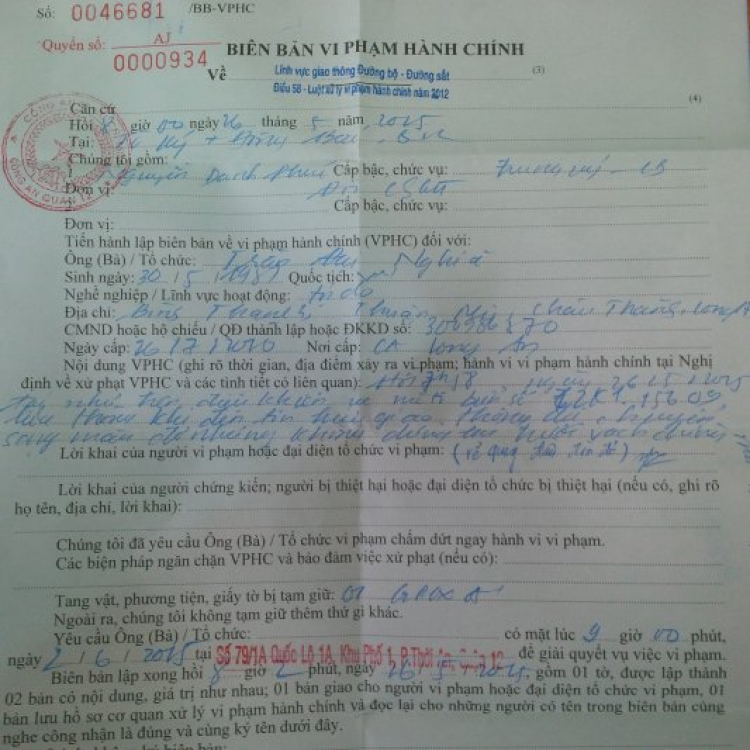 Số: 0046681 /BB-VPHC
Quyển số: AJ
0000934
BIÊN BẢN VI PHẠM HÀNH CHÍNH
Về Lĩnh vực giao thông Đường bộ - Đường sắt (3)
Điều 58 - Luật xử lý vi phạm hành chính năm 2012
(4)
Căn cứ
Hồi 8 giờ 00 ngày 26 tháng 5 năm 2015
Tại:
CÔNG AN QUẬN 12
Chúng tôi gồm:
1. Nguyễn Danh Cấp bậc, chức vụ: Trung úy - CB
Đơn vị: Đội CSGT
Cấp bậc, chức vụ:
Đơn vị:
Tiến hành lập biên bản về vi phạm hành chính (VPHC) đối với:
Ông (Bà) / Tổ chức: Nghĩa
Sinh ngày: 30 / 5 / Quốc tịch:
Nghề nghiệp / Lĩnh vực hoạt động: tự do
Địa chỉ: Bình Thạnh, Thuận Mỹ, Châu Thành, Long A
CMND hoặc hộ chiếu / QĐ thành lập hoặc ĐKKD số:
Ngày cấp: Nơi cấp: CA Long An
Nội dung VPHC (ghi rõ thời gian, địa điểm xảy ra vi phạm; hành vi vi phạm hành chính tại Nghị
định về xử phạt VPHC và các tình tiết có liên quan): ngày 26/5/2015
tại như trên điều khiển xe mô tô biển số
khi đèn tín hiệu giao thông đã chuyển
sang màu đỏ nhưng không dừng lại trước vạch dừng
Lời khai của người vi phạm hoặc đại diện tổ chức vi phạm:
Lời khai của người chứng kiến; người bị thiệt hại hoặc đại diện tổ chức bị thiệt hại (nếu có, ghi rõ
họ tên, địa chỉ, lời khai):
Chúng tôi đã yêu cầu Ông (Bà) / Tổ chức vi phạm chấm dứt ngay hành vi vi phạm.
Các biện pháp ngăn chặn VPHC và bảo đảm việc xử phạt (nếu có):
Tang vật, phương tiện, giấy tờ bị tạm giữ: 01 GPLX A1
Ngoài ra, chúng tôi không tạm giữ thêm thứ gì khác.
Yêu cầu Ông (Bà) / Tổ chức: có mặt lúc 9 giờ 00 phút,
ngày 2 / 6 / 2015 tại Số 79/1A Quốc Lộ 1A, Khu Phố 1, P.Thới An, Quận 12 để giải quyết vụ việc vi phạm.
Biên bản lập xong hồi 8 giờ phút, ngày 26 - 5 - 2015, gồm 01 tờ, được lập thành
02 bản có nội dung, giá trị như nhau; 01 bản giao cho người vi phạm hoặc đại diện tổ chức vi phạm, 01
bản lưu hồ sơ cơ quan xử lý vi phạm hành chính và đọc lại cho những người có tên trong biên bản cùng
nghe công nhận là đúng và cùng ký tên dưới đây.